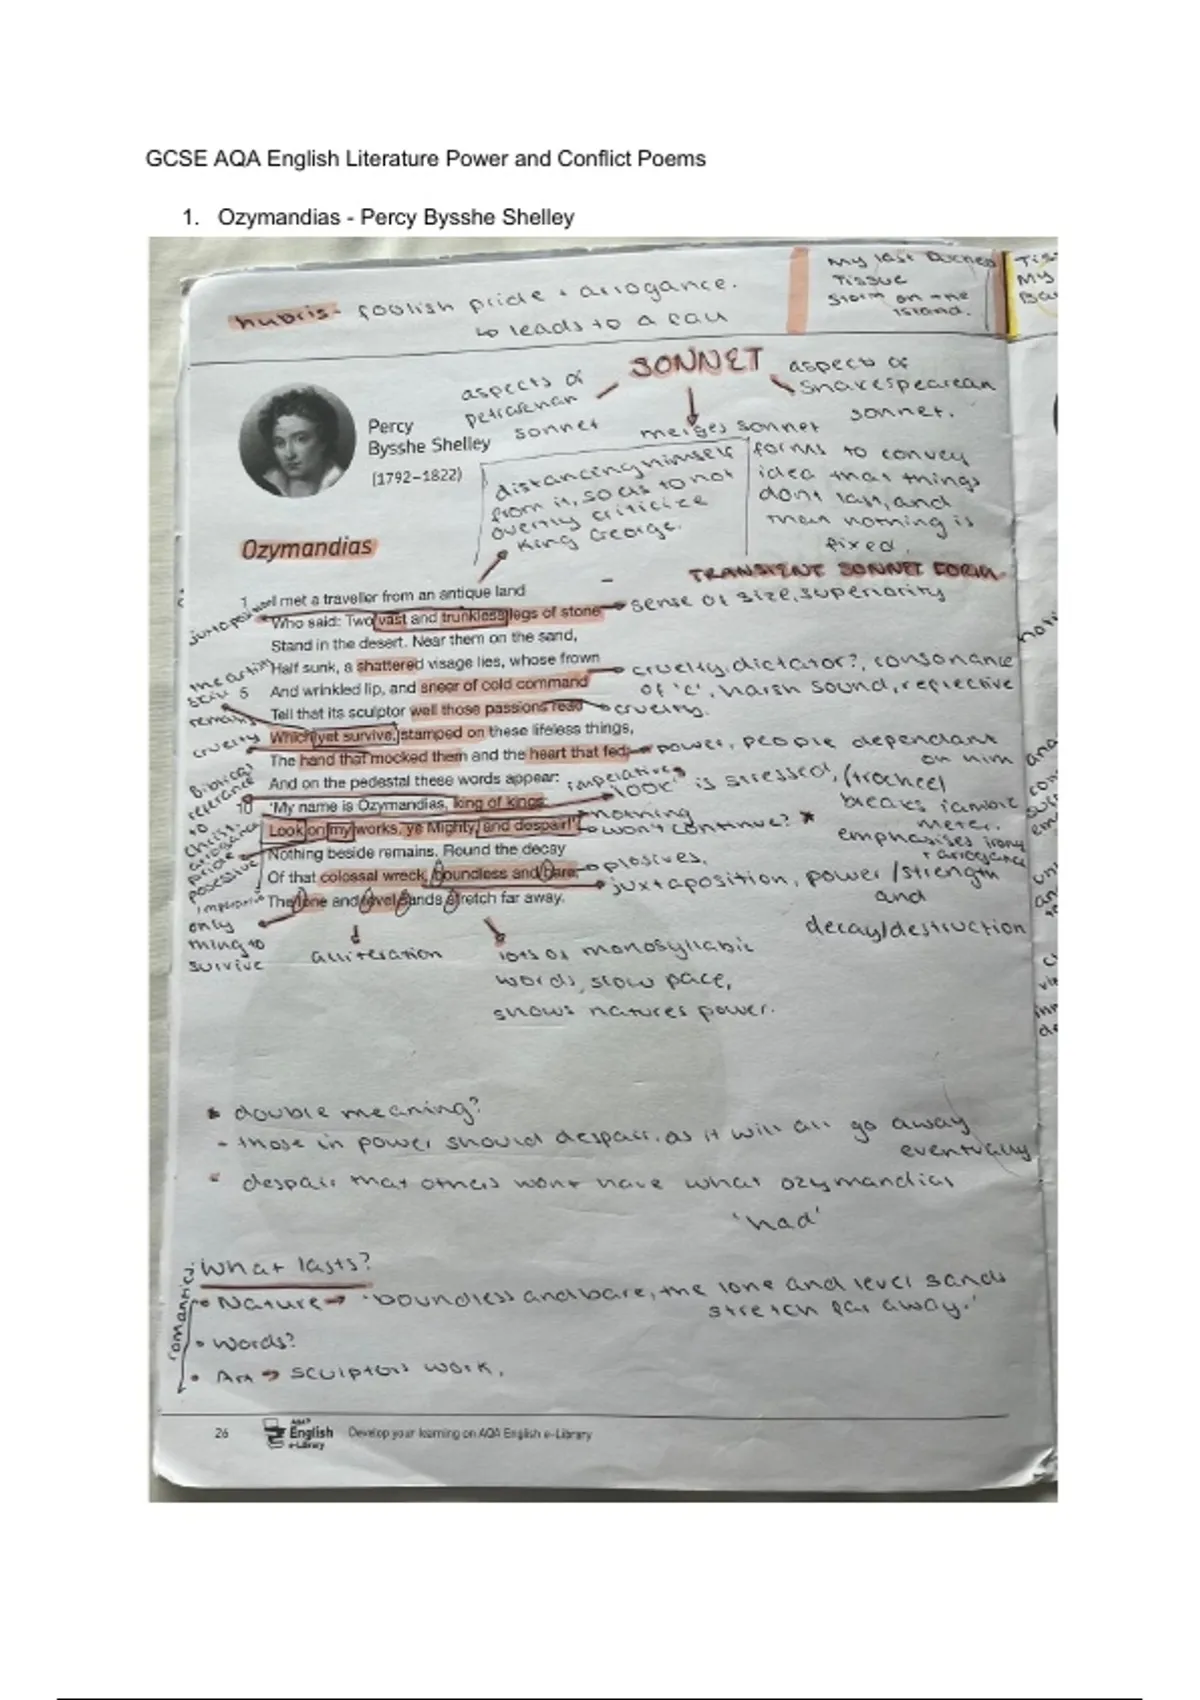 GCSE AQA English Literature Power and Conflict Poems
1. Ozymandias - Percy Bysshe Shelley
hubris - foolish pride + arrogance.
↳ leads to a fall
My last Duchess
Tissue
Storm on the
island.
Tis
My
Ba
SONNET
aspects of
petrarchan
sonnet
aspects of
Shakespearean
sonnet.
merges sonnet
forms to convey
idea that things
dont last, and
that nothing is
fixed.
TRANSIENT SONNET FORM
distancing himself
from it, so as to not
overtly criticize
King George.
Percy
Bysshe Shelley
(1792–1822)
Ozymandias
1 I met a traveller from an antique land
Who said: Two vast and trunkless legs of stone
Stand in the desert. Near them on the sand,
Half sunk, a shattered visage lies, whose frown
5 And wrinkled lip, and sneer of cold command
Tell that its sculptor well those passions read
Which yet survive, stamped on these lifeless things,
The hand that mocked them and the heart that fed;
And on the pedestal these words appear:
10 'My name is Ozymandias, king of kings:
Look on my works, ye Mighty, and despair!'
Nothing beside remains. Round the decay
Of that colossal wreck, boundless and bare,
The lone and level sands stretch far away.
juxtaposition
the artists
skill
remains
cruelty
Biblical
reference
to
Christ.
arrogance
pride
posessive
imperative
only
thing to
survive
sense of size, superiority
cruelty, dictator?, consonance
of 'c', harsh sound, reflective
cruelty.
power, people dependant
on him
imperative
'look' is stressed, (trochee)
breaks iambic
meter.
emphasises irony
+ arrogance
nothing
won't continue? *
plosives,
juxtaposition, power/strength
and
decay/destruction
alliteration
lots of monosyllabic
words, slow pace,
shows natures power.
* double meaning?
- those in power should despair, as it will all go away
eventually
* despair that others wont have what ozymandias
'had'
romantics:
What lasts?
• Nature → 'boundless and bare, the lone and level sands
stretch far away.'
• Words?
• Art → sculptors work.
26 AQA English e-Library Develop your learning on AQA English e-Library